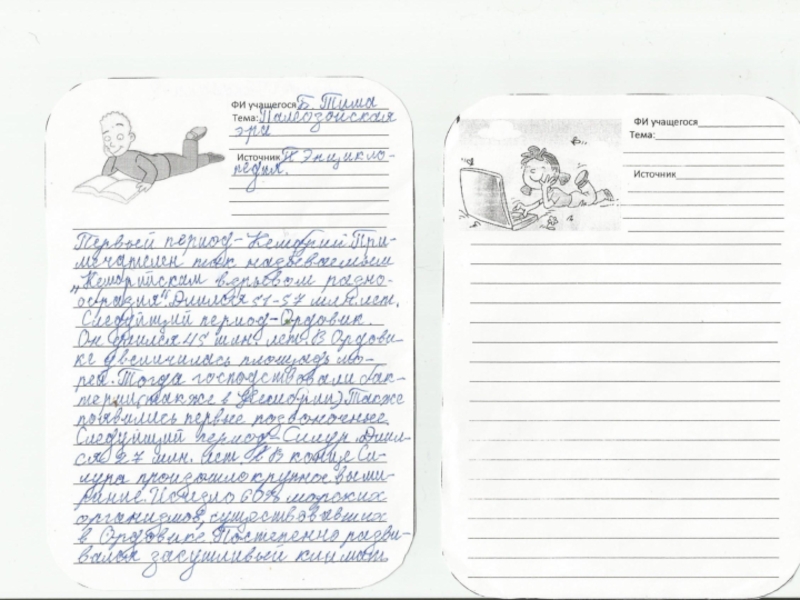 ФИ учащегося Б. Тима
Тема: Палеозойская
эра
Источник Энцикло-
педия.
Первый период - Кембрий При-
мечателен так называемым
„Кембрийским взрывом разно-
образия". Длился 51-57 млн лет.
Следуйщий период - Ордовик.
Он длился 45 млн. лет. В Ордови-
ке увеличилась площадь мо-
рей. Тогда господствовали бак-
терии (также в Кембрии). Также
появились первые позвоночные
Следуйщий период - Силур. Длил-
ся 27 млн. лет. В конце Си-
лура произошло крупное выми-
рание. Исчезло 60% морских
организмов, существовавших
в Ордовике. Постепенно разви-
вался засушливый климат
ФИ учащегося
Тема:
Источник